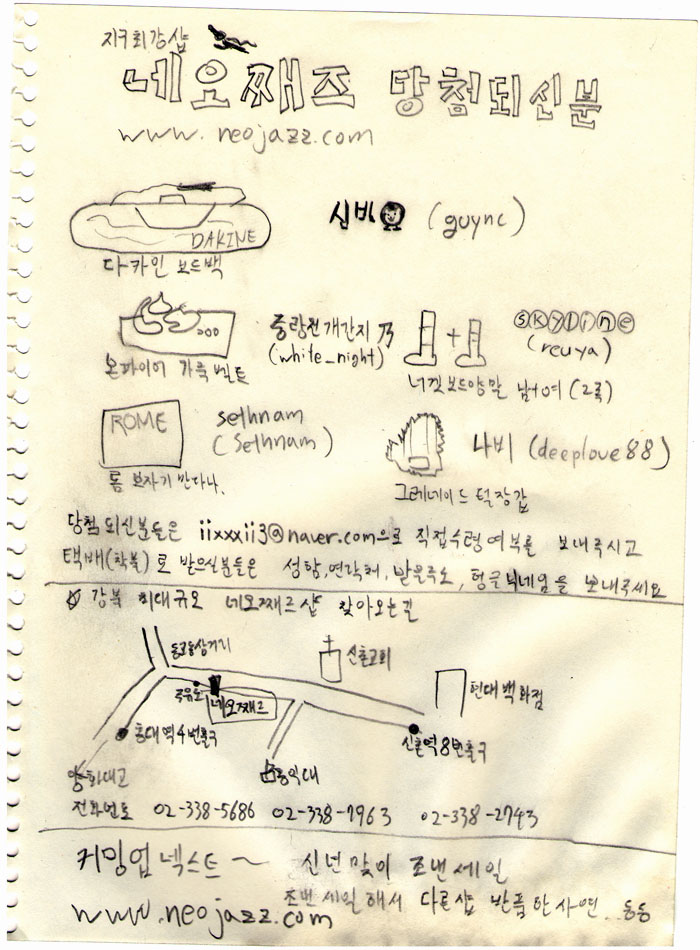 지구최강샵
네오째즈 당첨되신분
www.neojazz.com
DAKINE
다카인 보드백
신비 (guync)
중랑천개간지 乃
(white_night)
온파이어 가죽벨트
skyline
(reuya)
너겟보드양말 남+여 (2족)
ROME
sethnam
(Sethnam)
롬 보자기 반다나.
나비 (deeplove88)
그레네이드 털장갑
당첨되신분들은 iixxxii3@naver.com으로 직접수령여부를 보내주시고
택배(착불)로 받으실분들은 성함,연락처,받을주소,헝글닉네임을 보내주세요
강북 최대규모 네오째즈샵 찾아오는길
동교동삼거리
신촌교회
현대백화점
주유소
네오째즈
홍대역4번출구
신촌역8번출구
양화대교
홍익대
전화번호 02-338-5686 02-338-7963 02-338-2743
커밍업넥스트~ 신년맞이 조낸세일
조낸세일해서 다른샵 반품한사연..둥둥
www.neojazz.com